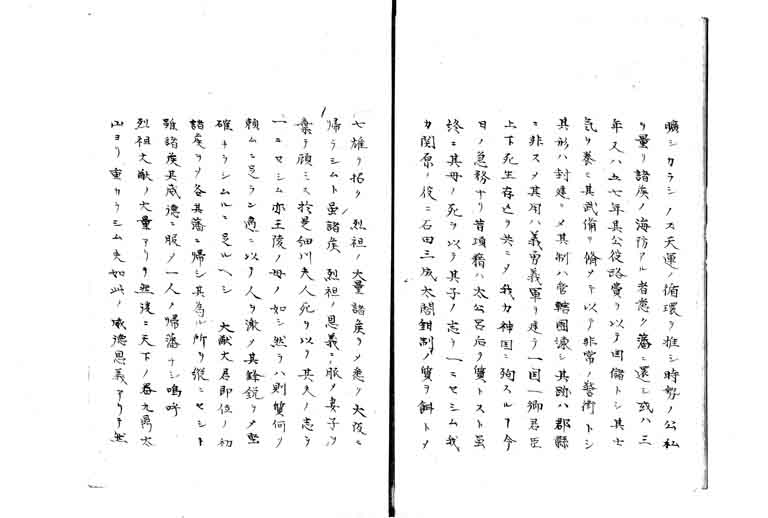 曠シカラシノス天運ノ循環ヲ推シ時勢ノ公私
ヲ量リ諸侯ノ海防アル者悉ク藩ニ還シ或ハ三
年又ハ五七年其公役路費ヲ以テ国備トシ其士
気ヲ養ヒ其武備ヲ脩メテ以テ非常ノ警衛トシ
其形ハ封建ニメ其制ハ管轄團凍シ其跡ハ郡縣
ニ非スメ其用ハ義勇義軍ヲ建テ一国一郷君臣
上下死生存亡ヲ共ニメ我カ神国ニ殉スルヿ今
日ノ急務ナリ昔項籍ハ太公呂后ヲ質トスト虽
終ニ其母ノ死ヲ以テ其子ノ志ヲ一ニセシム我
カ関原ノ役ニ石田三成太閤鉗制ノ質ヲ餌トメ
七雄ヲ招ク 烈祖ノ大量諸侯ヲメ悉ク大阪ニ
帰ラシムト虽諸侯 烈祖ノ恩義ニ服メ妻子ヲ
棄テ顧ミス於是細川夫人死ヲ以テ其夫ノ志ヲ
一ニセシム亦王陵ノ母ノ如シ然ラハ則質何ノ
頼ムニ足ラン適ニ以テ人ヲ激メ其鋒鋭ヲメ堅
確ナラシムルニ足ルヘシ 大猷大君即位ノ初
諸侯ヲメ各其藩ニ帰シ其為ル所ヲ縦ニセシト
雖諸侯其威徳ニ服メ一人ノ帰藩ナシ嗚呼
烈祖大猷ノ大量アリテ然後ニ天下ノ器九鼎太
山ヨリ重カラシム夫如此ノ威徳恩義アリテ然